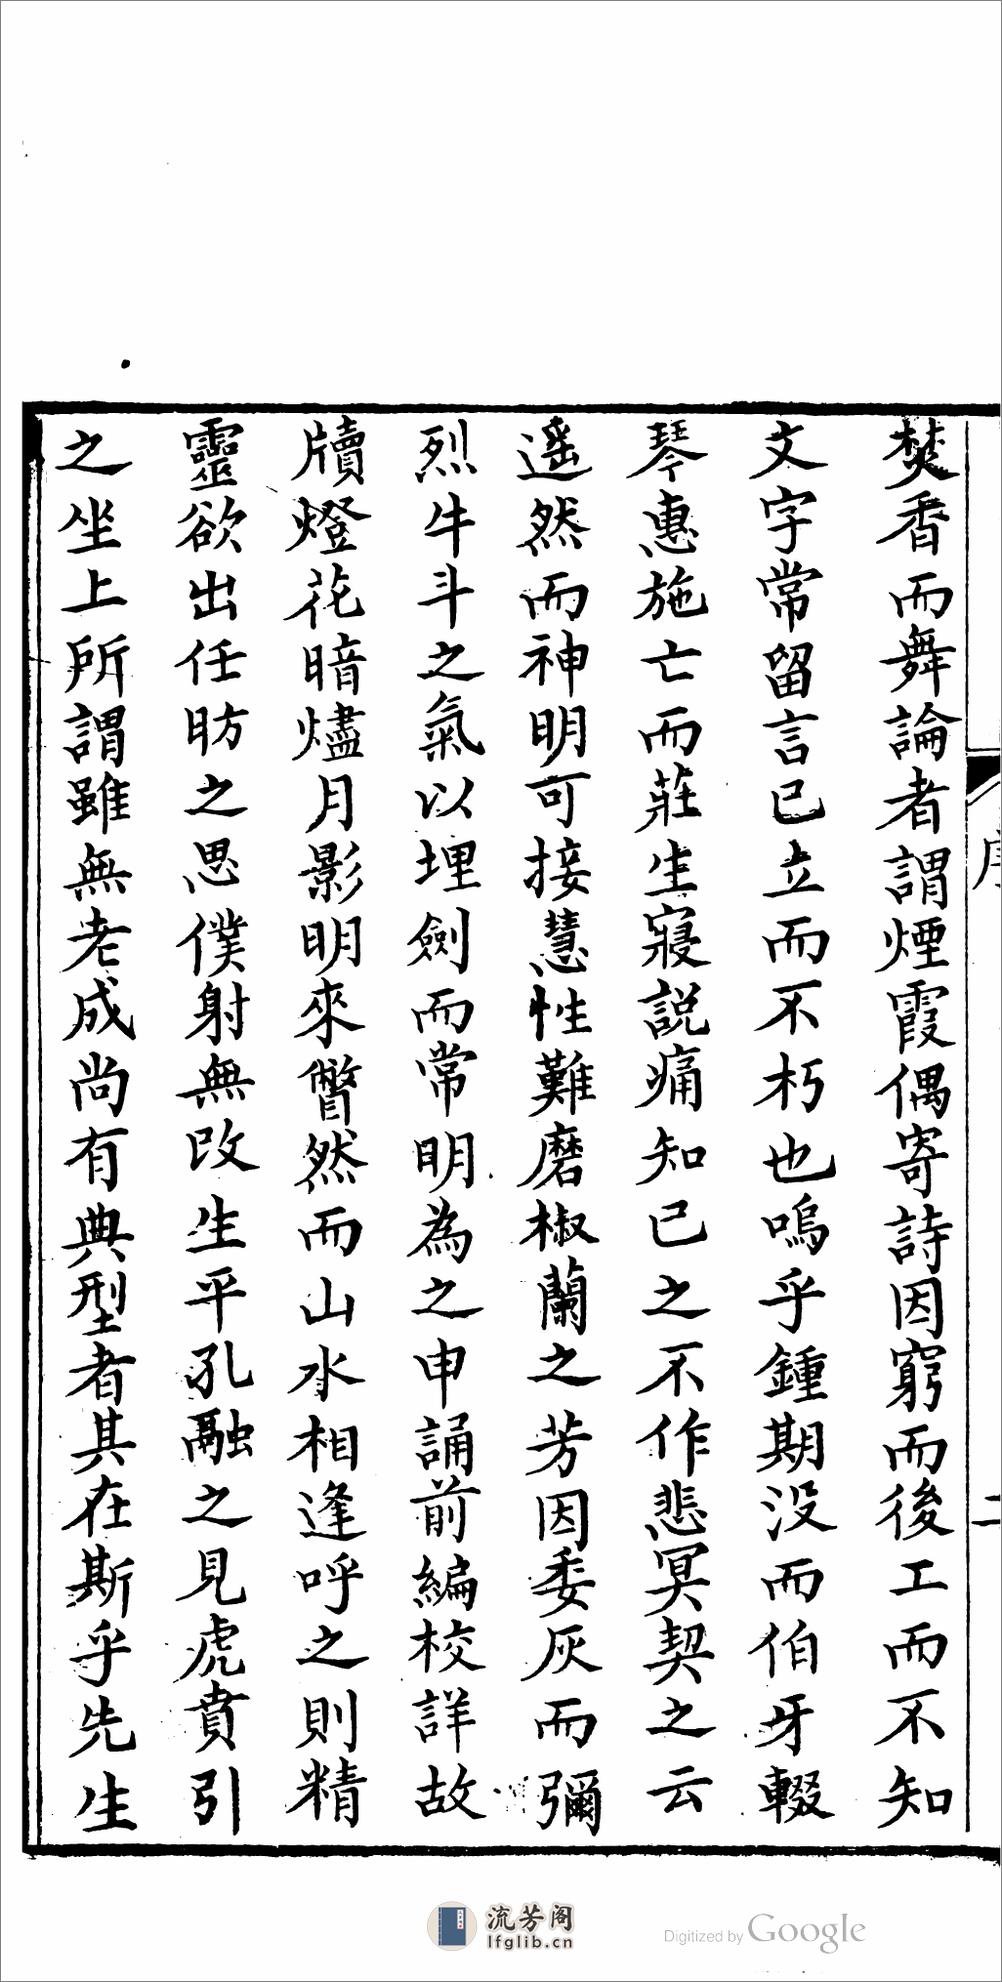 序
二
焚香而舞論者謂煙霞偶寄詩因窮而後工而不知
文字常留言已立而不朽也嗚乎鍾期没而伯牙輟
琴惠施亡而莊生寢説痛知已之不作悲冥契之云
遥然而神明可接慧性難磨椒蘭之芳因委灰而彌
烈牛斗之氣以埋劍而常明為之申誦前編校詳故
牘燈花暗燼月影明來瞥然而山水相逢呼之則精
靈欲出任昉之思僕射無改生平孔融之見虎賁引
之坐上所謂雖無老成尚有典型者其在斯乎先生
流芳阁
lfglib.cn
Digitized by Google